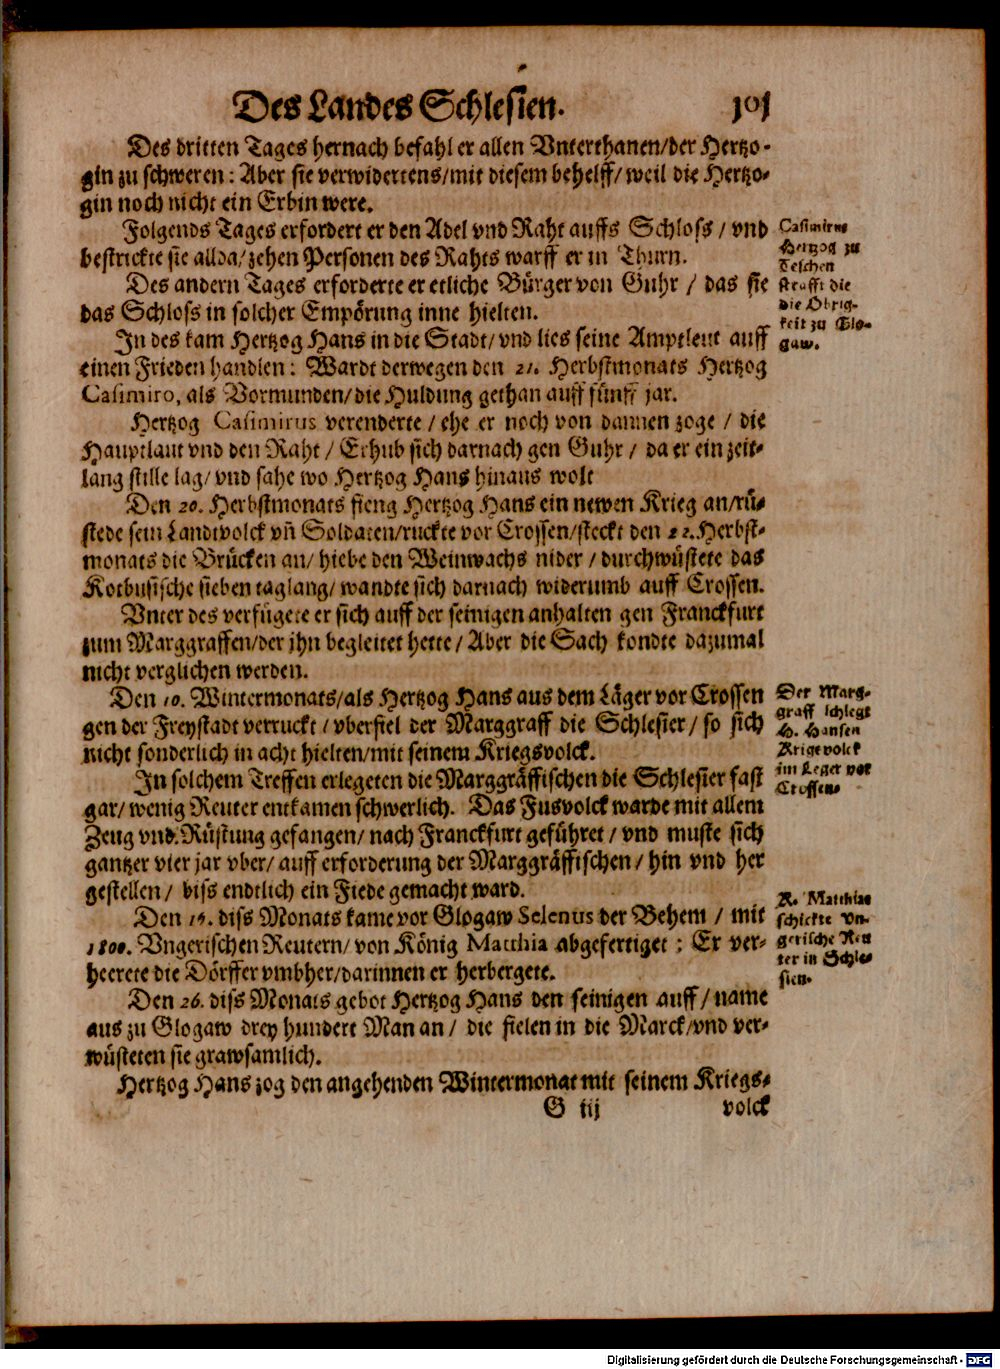 Des Landes Schlesien. 101
Des dritten Tages hernach befahl er allen Vnterthanen/der Hertzo-
gin zu schweren: Aber sie verwidertens/mit diesem behelff/weil die Hertzo-
gin noch nicht ein Erbin were.
Folgends Tages erfordert er den Adel vnd Raht auffs Schloss/vnd
bestrickte sie allda/zehen Personen des Rahts warff er in Thurn.
Casimirus
Hertzog zu
Teschen
strafft die
die Obrig-
keit zu Glo-
gaw.
Des andern Tages erforderte er etliche Bürger von Guhr / das sie
das Schloss in solcher Empörung inne hielten.
In des kam Hertzog Hans in die Stadt/vnd lies seine Amptleut auff
einen Frieden handlen: Wardt derwegen den 21. Herbstmonats Hertzog
Casimiro, als Vormunden/die Huldung gethan auff fünff jar.
Hertzog Casimirus verenderte / ehe er noch von dannen zoge / die
Hauptlaut vnd den Raht / Erhub sich darnach gen Guhr / da er ein zeit-
lang stille lag/vnd sahe wo Hertzog Hans hinaus wolt
Den 20. Herbstmonats fieng Hertzog Hans ein newen Krieg an/rü-
stede sein Landtvolck vñ Soldaten/ruckte vor Crossen/steckt den 22. Herbst-
monats die Brücken an/hiebe den Weinwachs nider / durchwüstete das
Kotbusische sieben taglang/wandte sich darnach widerumb auff Crossen.
Vnter des verfügete er sich auff der seinigen anhalten gen Franckfurt
zum Marggraffen/der jhn begleitet hette / Aber die Sach kondte dazumal
nicht verglichen werden.
Den 10. Wintermonats/als Hertzog Hans aus dem Läger vor Crossen
gen der Freystadt verruckt / vberfiel der Marggraff die Schlesier / so sich
nicht sonderlich in acht hielten/mit seinem Kriegsvolck.
Der Marg-
graff schlegt
H. Hansen
Krigevolck
im Leger vor
Crossen.
In solchem Treffen erlegeten die Marggräffischen die Schlesier fast
gar/wenig Reuter entkamen schwerlich. Das Fusvolck warde mit allem
Zeug vnd Rüstung gefangen/nach Franckfurt geführet / vnd muste sich
gantzer vier jar vber/auff erforderung der Marggräffischen / hin vnd her
gestellen / biss endtlich ein Fiede gemacht ward.
Den 15. diss Monats kame vor Glogaw Selenus der Behem / mit
1800. Vngerischen Reutern/von König Matthia abgefertiget: Er ver-
heerete die Dörffer vmbher/darinnen er herbergete.
K. Matthias
schickte Vn-
gerische Reu
ter in Schle-
sien.
Den 26. diss Monats gebot Hertzog Hans den seinigen auff / name
aus zu Glogaw drey hundert Man an / die fielen in die Marck/vnd ver-
wüsteten sie grawsamlich.
Hertzog Hans zog den angehenden Wintermonat mit seinem Kriegs-
G iij volck
Digitalisierung gefördert durch die Deutsche Forschungsgemeinschaft - DFG